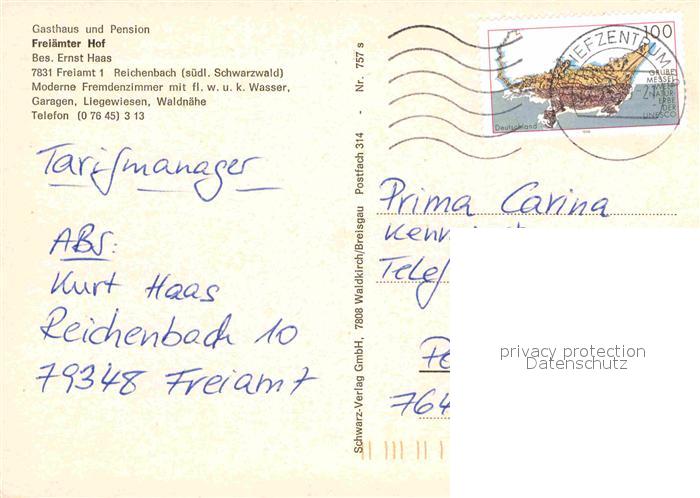 Gasthaus und Pension
Freiämter Hof
Bes. Ernst Haas
7831 Freiamt 1 Reichenbach (südl. Schwarzwald)
Moderne Fremdenzimmer mit fl. w. u. k. Wasser,
Garagen, Liegewiesen, Waldnähe
Telefon (0 76 45) 3 13
Tarifmanager
ABS:
Kurt Haas
Reichenbach 10
79348 Freiamt
Schwarz-Verlag GmbH, 7808 Waldkirch/Breisgau Postfach 314 - Nr. 757 s
100
GRUBE
MESSEL
WELT
NATUR
ERBE
DER
UNESCO
Deutschland
IEFZENTRUM
Prima Carina
Kenn
Telef
764
privacy protection
Datenschutz